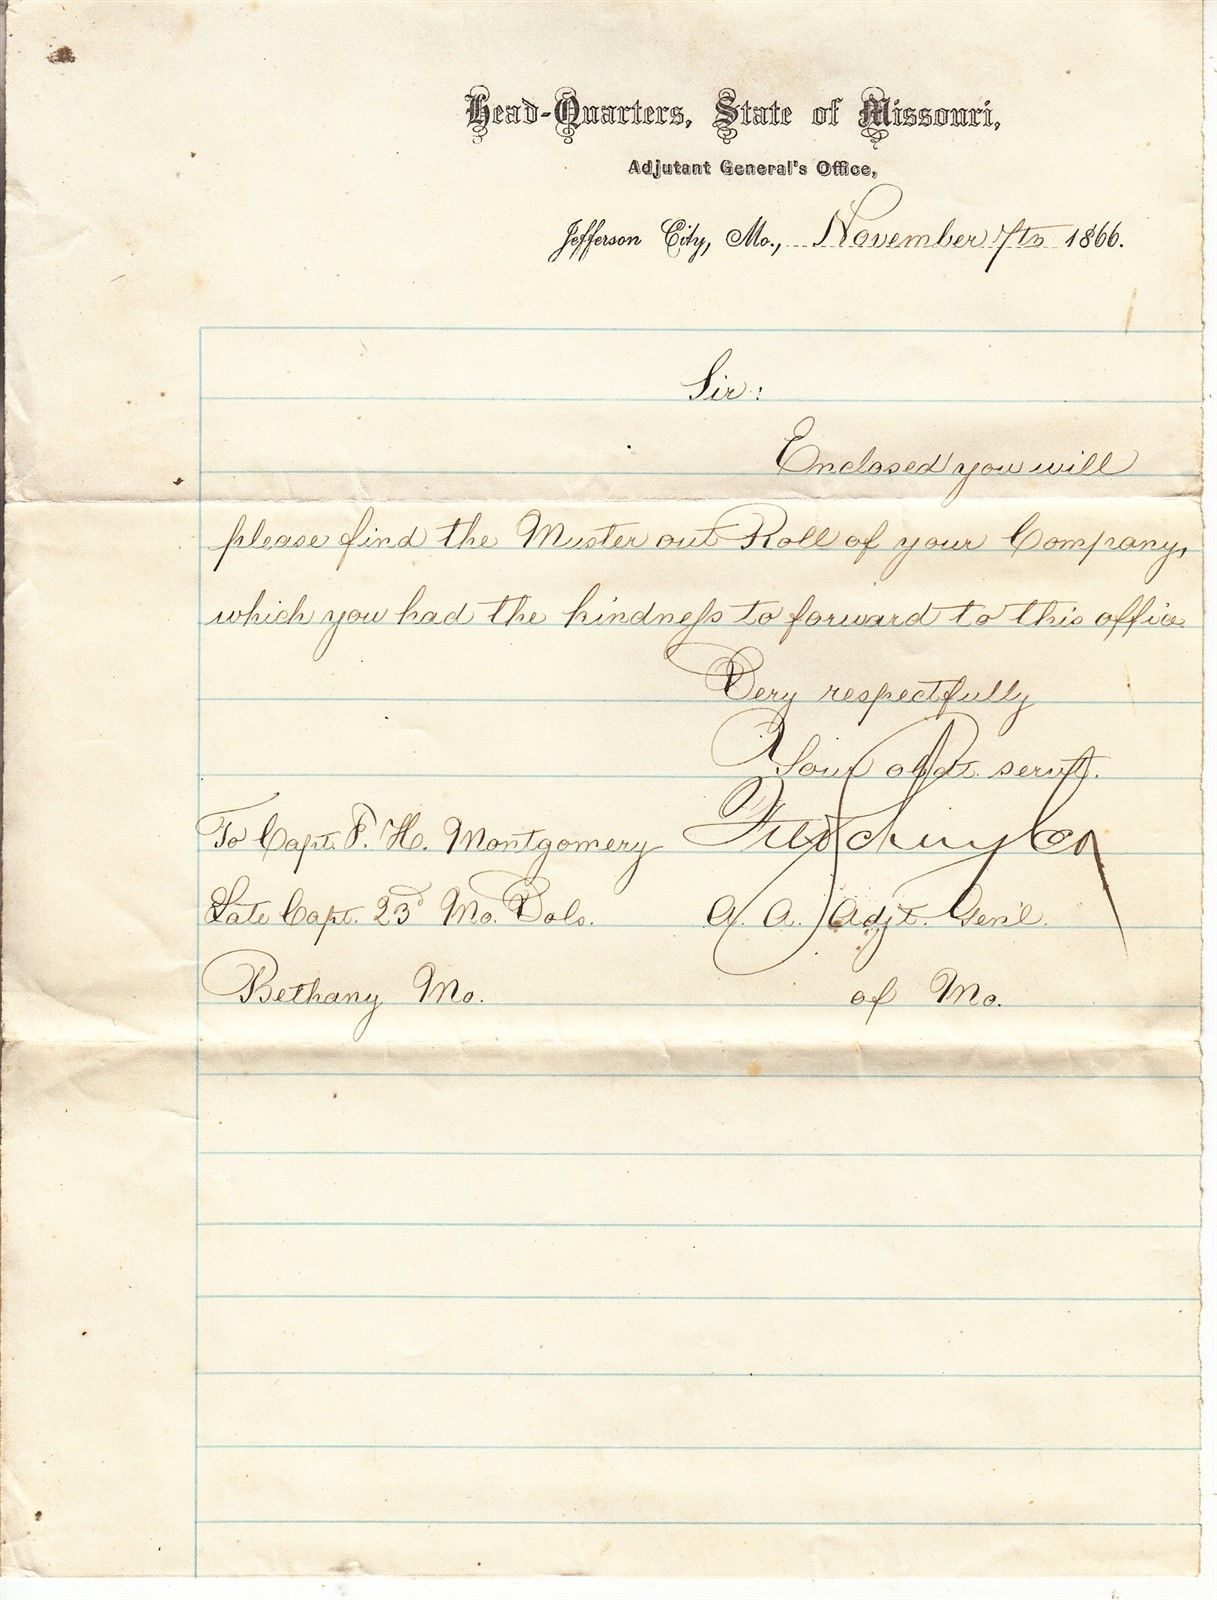 Head-Quarters, State of Missouri,
Adjutant General's Office,
Jefferson City, Mo., November 7th 1866.
Sir:
Enclosed you will
please find the Muster out Roll of your Company,
which you had the kindness to forward to this office.
Very respectfully
Your obdt. servt.
To Capt. F. H. Montgomery
Late Capt. 23d Mo. Vols.
A. A. Adjt. Genl.
Bethany Mo.
of Mo.